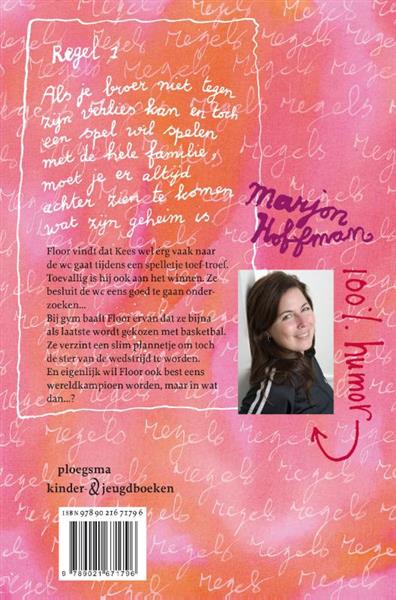 Regel 1
Als je broer niet tegen
zijn verlies kan en toch
een spel wil spelen
met de hele familie,
moet je er altijd
achter zien te komen
wat zijn geheim is
Floor vindt dat Kees wel erg vaak naar
de wc gaat tijdens een spelletje toef-troef.
Toevallig is hij ook aan het winnen. Ze
besluit de wc eens goed te gaan onder-
zoeken...
Bij gym baalt Floor ervan dat ze bijna
als laatste wordt gekozen met basketbal.
Ze verzint een slim plannetje om toch
de ster van de wedstrijd te worden.
En eigenlijk wil Floor ook best eens
wereldkampioen worden, maar in wat
dan...?
Marjon
Hoffman
100% humor
ploegsma
kinder- & jeugdboeken
ISBN 978 90 216 7179 6
9 789021 671796
regels regels regels